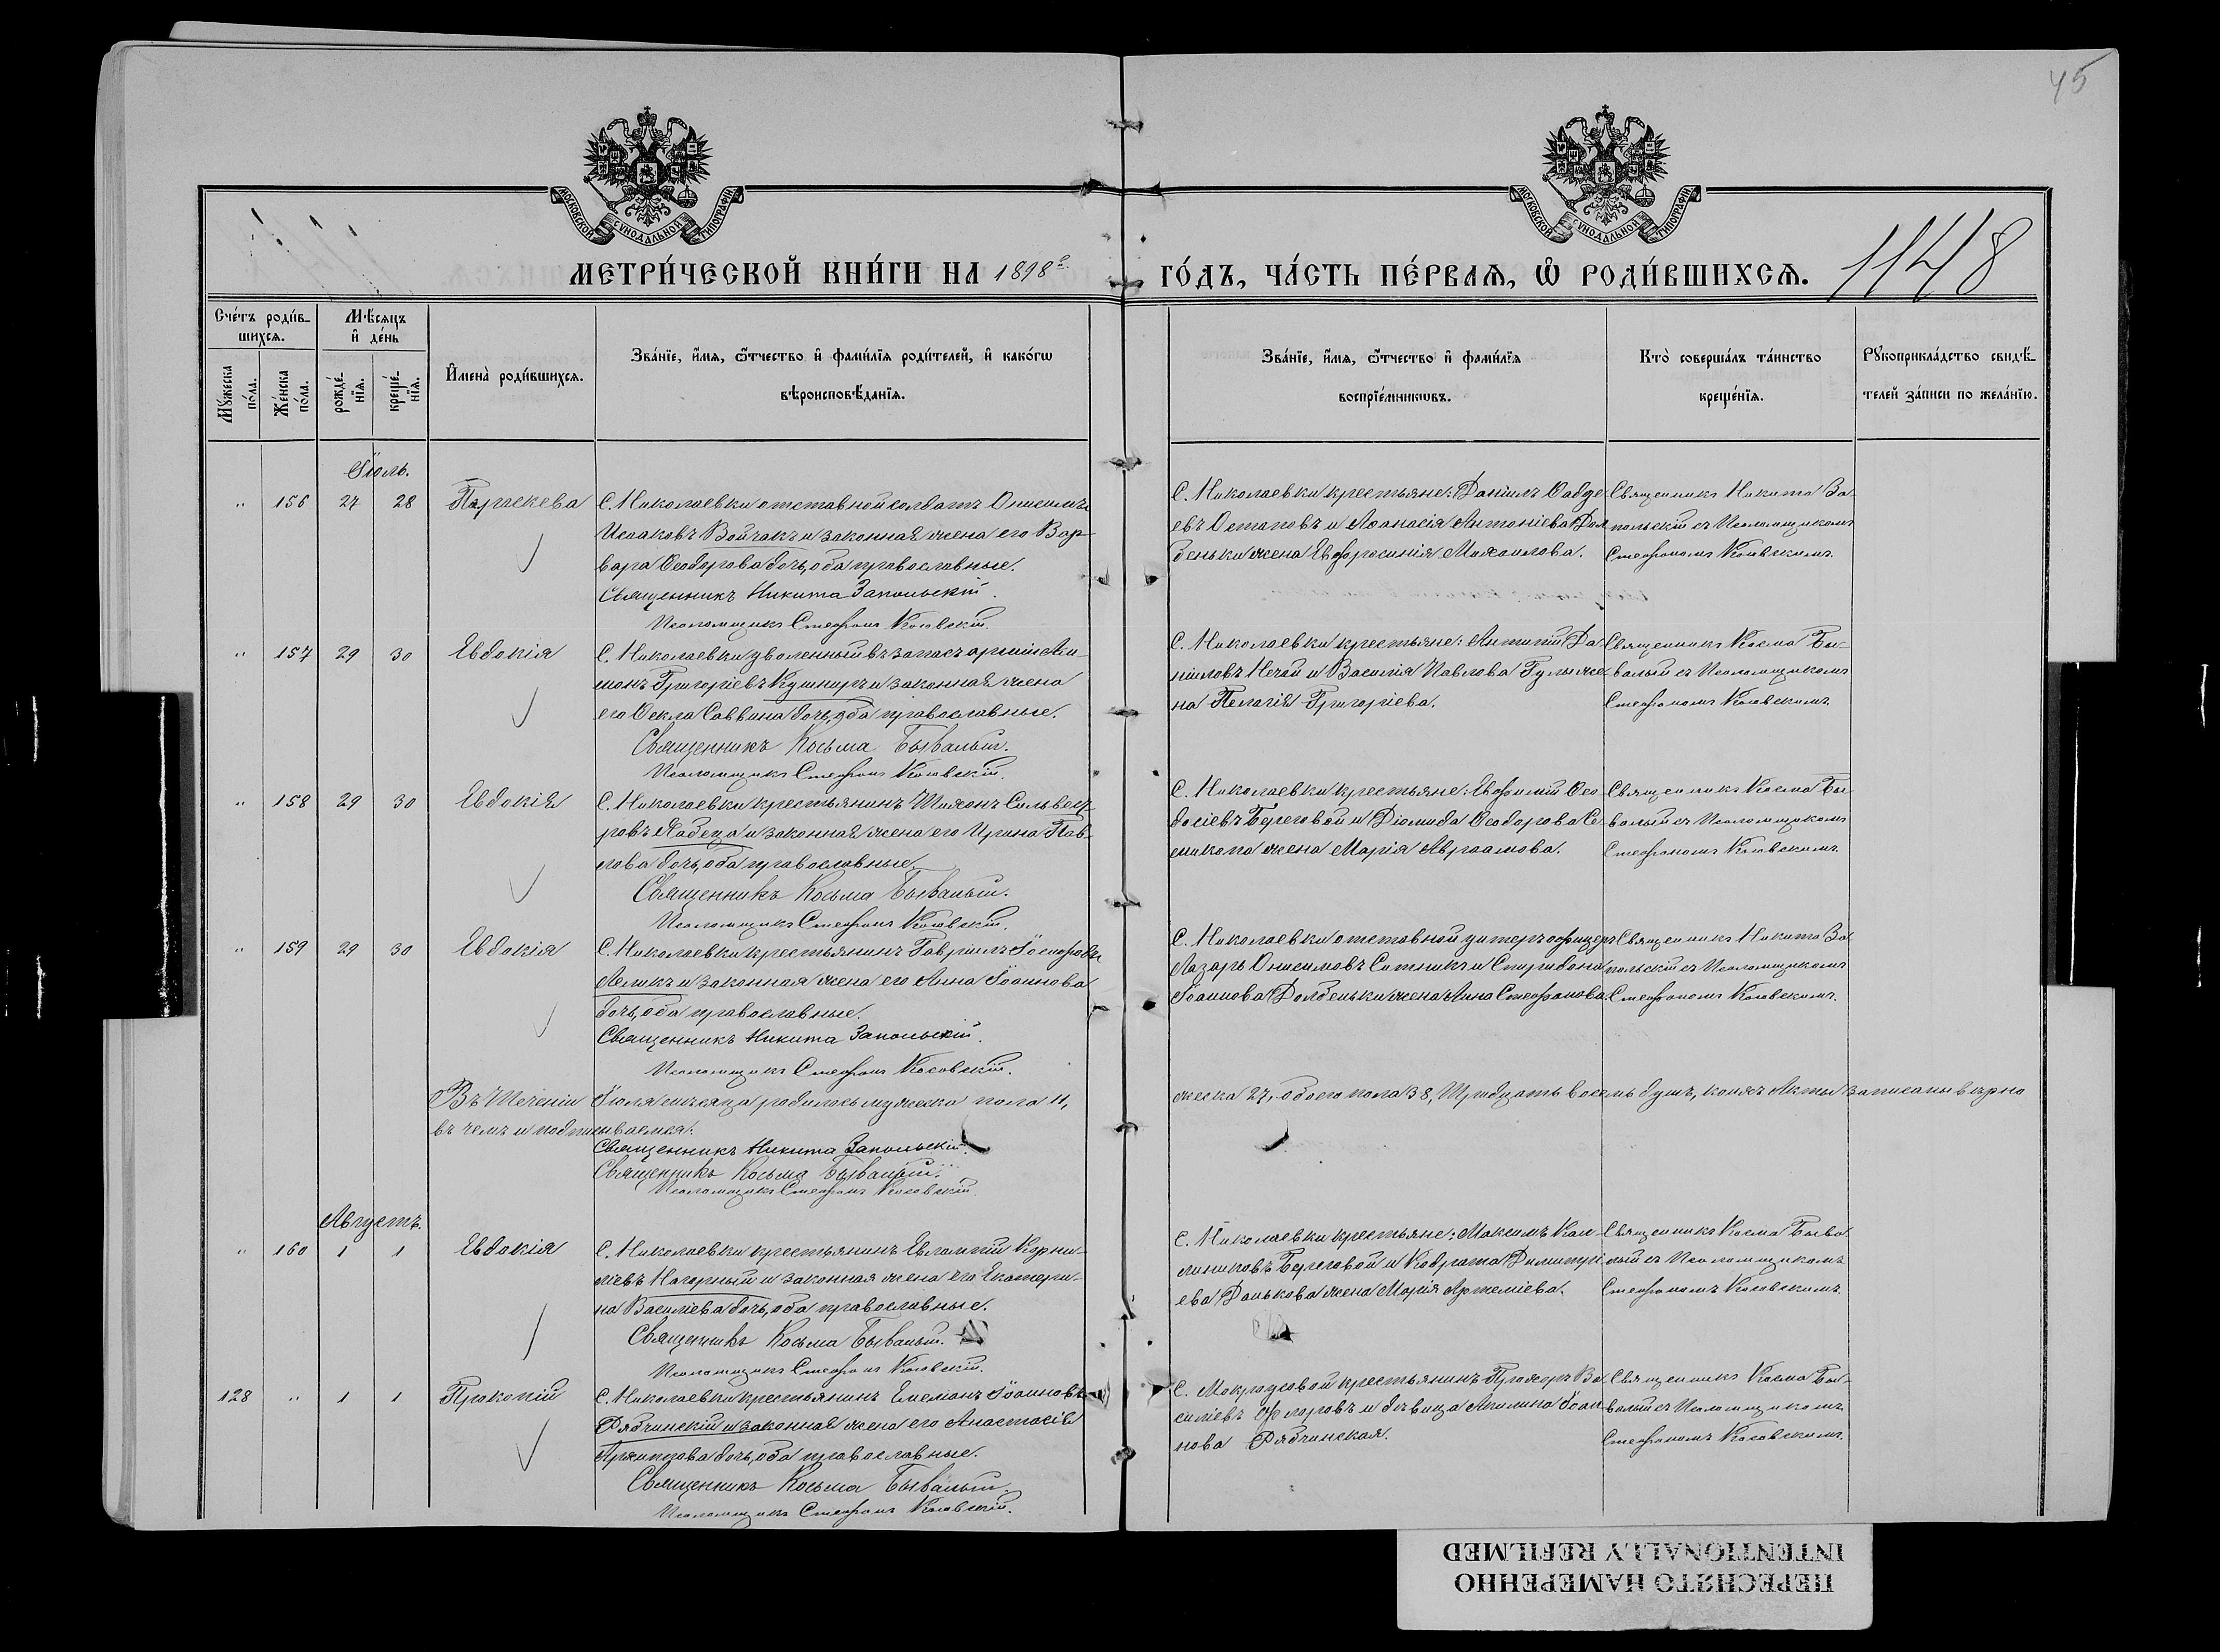 45
МОСКОВСКОЙ СѴНОДАЛЬНОЙ ТИПОГРАФІИ
МОСКОВСКОЙ СѴНОДАЛЬНОЙ ТИПОГРАФІИ
МЕТРИ́ЧЕСКОЙ КНИ́ГИ НА 1898 г.
ГО́ДЪ, ЧА́СТЬ ПЕ́РВАѦ, Ѽ РОДИ́ВШИХСѦ.
1148
Сче́тъ роди́в-
шихсѧ.
Мѣ́сѧцъ
и҆ де́нь
Мꙋ́жеска
по́ла.
Же́нска
по́ла.
рожде́-
нїѧ.
креще́-
нїѧ.
И҆мена̀ роди́вшихсѧ.
Зва́нїе, и҆́мѧ, ѻ҆́тчество и҆ фами́лїѧ роди́телей, и҆ како́гѡ
вѣроисповѣ́данїѧ.
Зва́нїе, и҆́мѧ, ѻ҆́тчество и҆ фами́лїѧ
воспрїе́мникѡвъ.
Кто̀ соверша́лъ та́инство
креще́нїѧ.
Рꙋкоприкла́дство свидѣ́-
телей за́писи по жела́нїю.
Іюль.
" 156 27 28 Параскева
С. Николаевки отставной солдатъ Онисимъ
Исааковъ Войчакъ и законная жена его Вар-
вара Ѳеодорова дочь, оба православные.
Священникъ Никита Запольскій.
Псаломщикъ Стефанъ Косовскій.
С. Николаевки крестьяне: Даніилъ Ѳадде-
евъ Остаповъ и Аѳанасія Антоніева Дол
беньки жена Евфросинія Михаилова.
Священникъ Никита За-
польскій съ Псаломщикомъ
Стефаномъ Косовскимъ.
" 157 29 30 Евдокія
С. Николаевки уволенный въ запасъ арміи Си-
монъ Григоріевъ Кушниръ и законная жена
его Ѳекла Саввина дочь, оба православные.
Священникъ Косьма Бывалый.
Псаломщикъ Стефанъ Косовскій.
С. Николаевки крестьяне: Антипій Да-
ніиловъ Нечай и Василія Павлова Гулы же-
на Пелагія Григоріева.
Священникъ Косма Бы-
валый съ Псаломщикомъ
Стефаномъ Косовскимъ.
" 158 29 30 Евдокія
С. Николаевки крестьянинъ Симонъ Сильвест-
ровъ и законная жена его Ирина Пав-
лова дочь, оба православные.
Священникъ Косьма Бывалый.
Псаломщикъ Стефанъ Косовскій.
С. Николаевки крестьяне: Евфимій Ѳео-
досіевъ Береговой и Діомида Ѳеодорова Се-
жена Марія Авраамова.
Священникъ Косма Бы-
валый съ Псаломщикомъ
Стефаномъ Косовскимъ.
" 159 29 30 Евдокія
С. Николаевки крестьянинъ Гавріилъ Іосифовъ
и законная жена его Анна Іоаннова
дочь, оба православные.
Священникъ Никита Запольскій.
Псаломщикъ Стефанъ Косовскій.
С. Николаевки отставной унтеръ офицеръ
Лазарь Онисимовъ Ситникъ и Спиридона
Іоаннова Долбеньки жена Анна Стефанова.
Священникъ Никита За-
польскій съ Псаломщикомъ
Стефаномъ Косовскимъ.
Въ теченіи Іюля мѣсяца родилось мужеска пола 11, женска 27, обоего пола 38, тридцать восемь душъ, коихъ акты записаны вѣрно
въ чемъ и подписываемся:
Священникъ Никита Запольскій.
Священникъ Косьма Бывалый.
Псаломщикъ Стефанъ Косовскій.
Августъ.
" 160 1 1 Евдокія
С. Николаевки крестьянинъ Евлампій Корни-
ліевъ Нагорный и законная жена его Екатери-
на Василіева дочь, оба православные.
Священникъ Косьма Бывалый.
Псаломщикъ Стефанъ Косовскій.
С. Николаевки крестьяне: Максимъ Кал-
линиковъ Береговой и Кодрата Димитрі-
ева Данькова жена Марія Артеміева.
Священникъ Косма Быва-
лый съ Псаломщикомъ
Стефаномъ Косовскимъ.
128 " 1 1 Прокопій
С. Николаевки крестьянинъ Емеліанъ Іоанновъ
Рябчинскій и законная жена его Анастасія
дочь, оба православные.
Священникъ Косьма Бывалый.
Псаломщикъ Стефанъ Косовскій.
С. крестьянинъ Прохоръ Ва-
силіевъ и дѣвица Акилина Іоан-
нова Рябчинская.
Священникъ Косма Бы-
валый съ Псаломщикомъ
Стефаномъ Косовскимъ.
ПЕРЕСНЯТО НАМЕРЕННО
INTENTIONALLY REFILMED